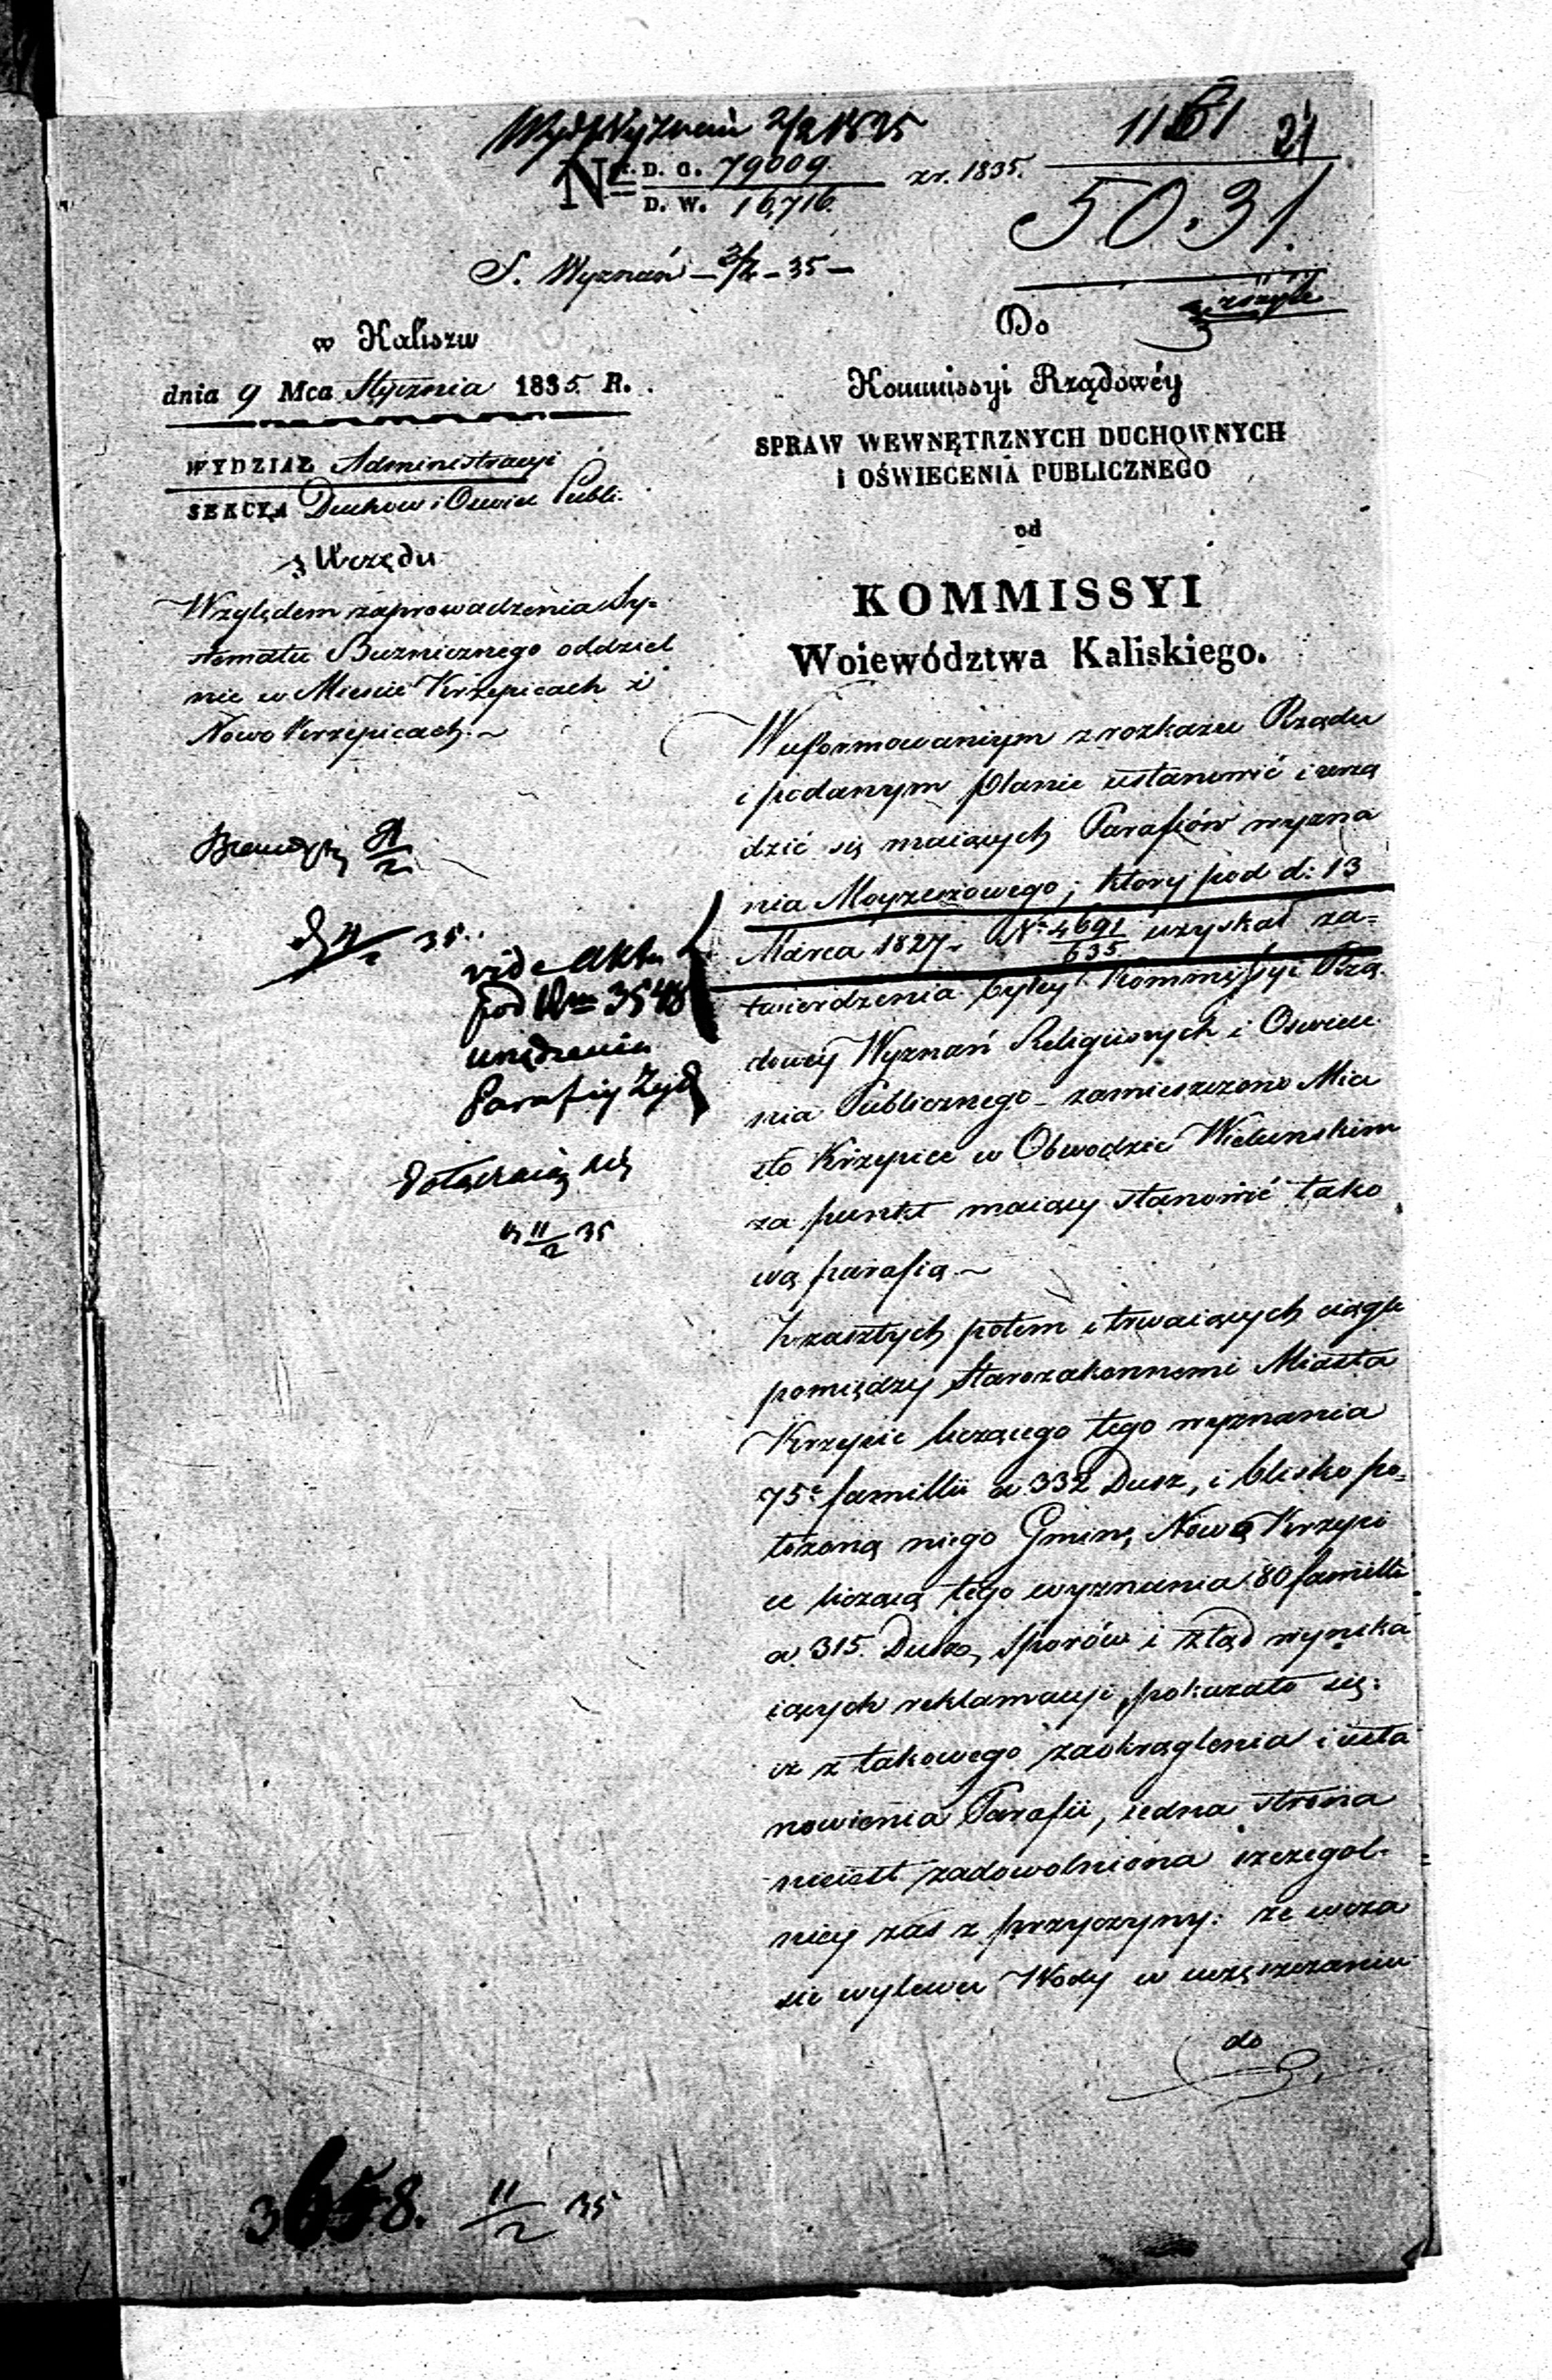 Wyd. Wyznań 2/2 1835
1161 21
Nr. D. G. 79009.
D. W. 16,716.
zr. 1835.
50.31.
S. Wyznań – 3/2 – 35 –
w Kaliszu
dnia 9 Mca Stycznia 1835. R.
WYDZIAŁ Administracyi
SEKCYA Duchow i Oswiec Publi.
z Urzędu
Względem zaprowadzenia Sy=
stematu Buzniczego oddziel
nie w Miescie Krzepicach i
Nowo Krzepicach. ~
35.
vide Akta
pod Nrm 3548
urządzenia
Parafiy Żyd
11/2 35
Do
Kommissyi Rządowéy
SPRAW WEWNĘTRZNYCH DUCHOWNYCH
I OŚWIECENIA PUBLICZNEGO
od
KOMMISSYI
Woiewództwa Kaliskiego.
W uformowaniym z rozkazu Rządu
i podanym planie ustanowić i urzą
dzić się maiących Parafiów wyzna
nia Moyzeszowego; ktory pod d: 13
Marca 1827 – No 4691/635 uzyskał za=
twierdzenia byłey Kommissyi Rzą
dowey Wyznań Religiinych i Oswiece
nia Publicznego – zamieszczono Mia
sto Krzepice w Obwodzie Wielunskim
za punkt maiący stanowić tako
wą parafią ~
Z zaszłych potem i trwaiących ciągle
pomiędzy Starozakonnemi Miasta
Krzepic liczącego tego wyznania
75. familii a 332 Dusz, i blisko po=
łożoną niego Gminę Nowo Krzepi
ce liczącą tego wyznania 80 familli
a 315. Dusz, sporów i ztąd wynika
iących reklamacyi, pokazało się:
iż z takowego zaokrąglenia i usta
nowienia Parafii, iedna strona
nieiest zadowolniona szczegol=
niey zas z przyczyny: że wcza
sie wylewu Wody w uczęszczaniu
do
3658. 11/2 35